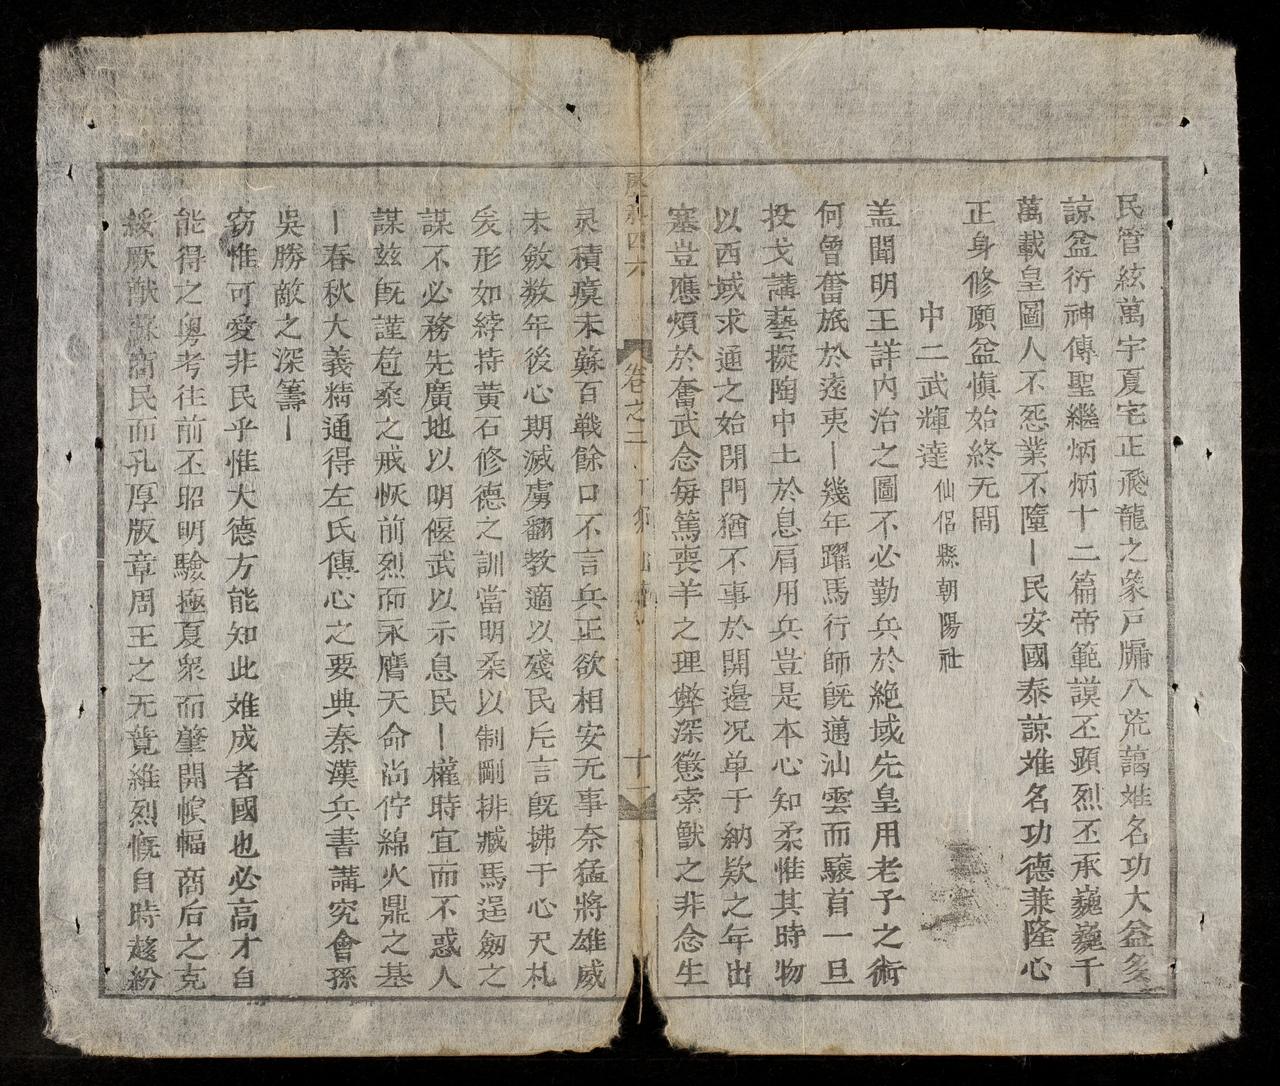 民管絃萬宇夏宅正飛龍之象戸牖八荒藹𱥯名功大益多
諒益衍神傳聖繼炳炳十二篇帝範謨丕顯烈丕承巍巍千
萬載皇圖人不忘業不隳丨民安國泰諒𱥯名功德兼隆心
正身修願益愼始終无間
中二武輝達 仙侶縣朝陽社
盖聞明王詳内治之圖不必勤兵於絶域先皇用老子之術
何曾奮旅於遠夷丨幾年躍馬行師旣邁汕雲而驤首一旦
投戈講藝擬陶中土於息肩用兵豈是本心知柔惟其時物
以西域求通之始閉門猶不事於開邊况单于納欵之年出
塞豈應煩於奮武念毎篤喪羊之理弊深懲索獸之非念生
灵積瘼未蘇百戰餘口不言兵正欲相安无事奈猛將雄威
未斂数年後心期滅虜翻教適以殘民斥言旣拂于心尺札
矣形如綍持黄石修德之訓當明柔以制剛排臧馬逞劔之
謀不必務先廣地以明偃武以示息民丨權時宜而不惑人
謀兹旣謹苞桑之戒恢前烈而永膺天命尚佇綿火鼎之基
丨春秋大義精通得左氏傳心之要典秦漢兵書講究會孫
吳勝敵之深籌丨
窃惟可愛非民乎惟大德方能知此𱥯成者國也必高才自
能得之粤考往前丕昭明驗極夏衆而肇開幀幅商后之克
綏厥猷蘇商民而孔厚版章周王之无競維烈慨自時趍紛
卷之二
十一